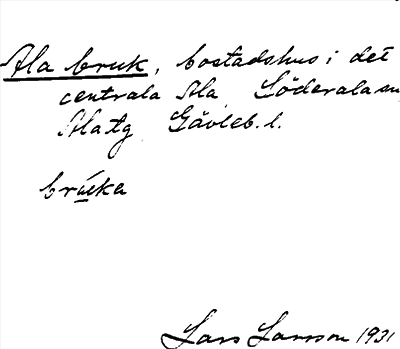 Ala bruk, bostadshus i det
centrala Ala Söderala sn
Ala tg Gävleb. l.
brúka
Lars Larsson 1931